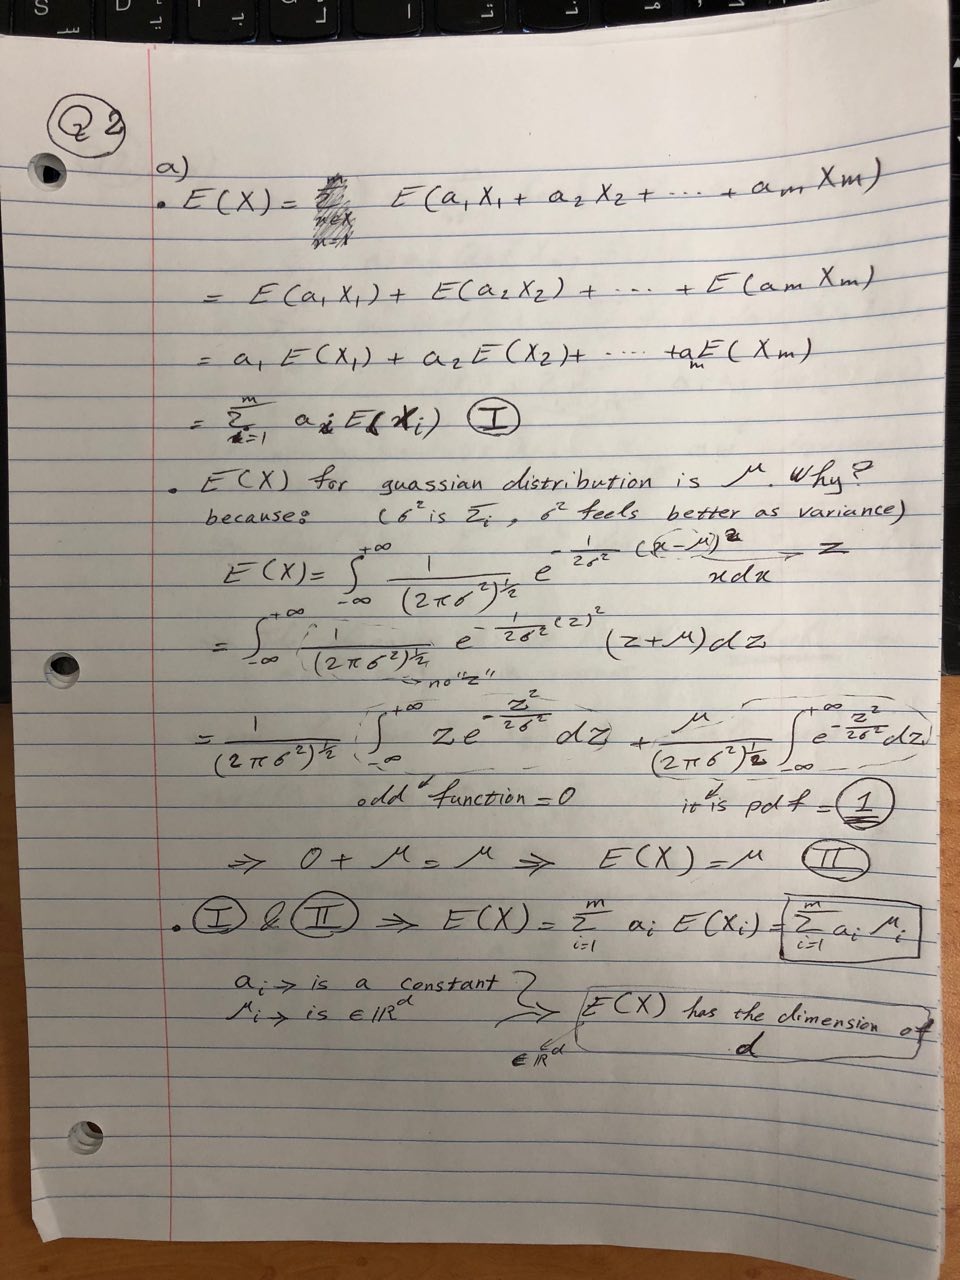 Q2
a)
• E(X) = E(a₁X₁ + a₂X₂ + ⋯ + aₘXₘ)
= E(a₁X₁) + E(a₂X₂) + ⋯ + E(aₘXₘ)
= a₁E(X₁) + a₂E(X₂) + ⋯ + aₘE(Xₘ)
= Σᵢ₌₁ᵐ aᵢE(Xᵢ) (I)
• E(X) for guassian distribution is μ. Why?
because: (σ² is Σᵢ, σ² feels better as variance)
E(X) = ∫_{-∞}^{+∞} 1/(2πσ²)^{1/2} e^{-1/(2σ²) (x-μ)²} xdx → z
= ∫_{-∞}^{+∞} 1/(2πσ²)^{1/2} e^{-1/(2σ²) (z)²} (z+μ)dz
→ no "z"
= 1/(2πσ²)^{1/2} ∫_{-∞}^{+∞} z e^{-z²/2σ²} dz + μ/(2πσ²)^{1/2} ∫_{-∞}^{+∞} e^{-z²/2σ²} dz
odd function = 0 it is pdf = 1
⇒ 0 + μ = μ ⇒ E(X) = μ (II)
• (I) & (II) ⇒ E(X) = Σᵢ₌₁ᵐ aᵢ E(Xᵢ) = Σᵢ₌₁ᵐ aᵢ μᵢ
aᵢ → is a constant
μᵢ → is ∈ ℝᵈ
E(X) has the dimension of
d
∈ ℝᵈ